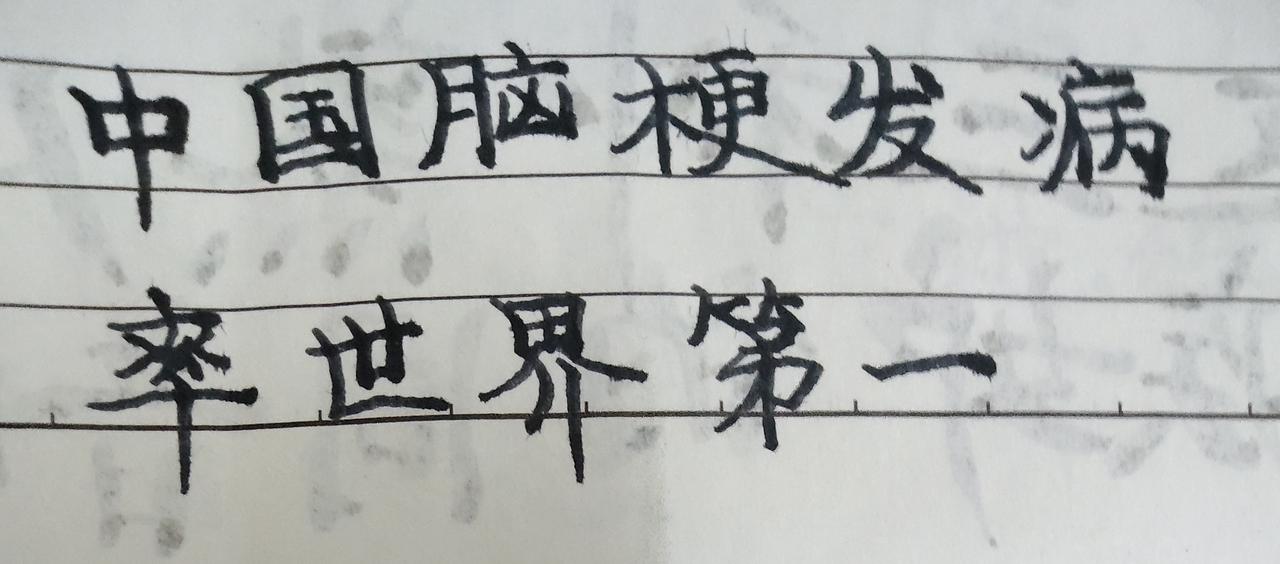 中国脑梗发病
率世界第一